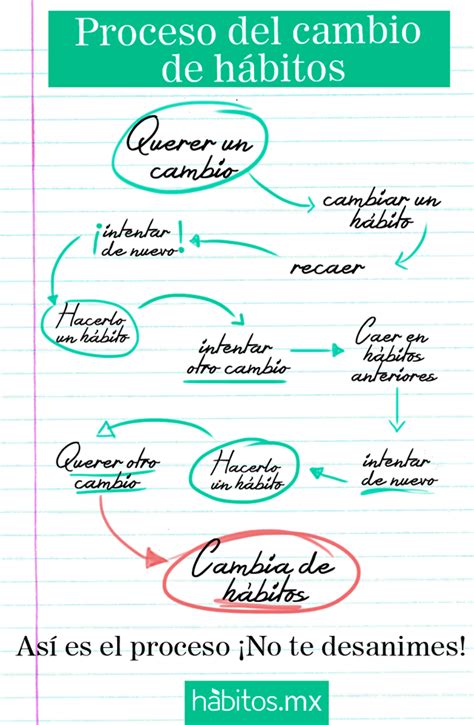 Proceso del cambio
de hábitos
Querer un
cambio
cambiar un
hábito
recaer
¡intentar
de nuevo!
Hacerlo
un hábito
intentar
otro cambio
Caer en
hábitos
anteriores
intentar
de nuevo
Hacerlo
un hábito
Querer otro
cambio
Cambia de
hábitos
Así es el proceso ¡No te desanimes!
hábitos.mx